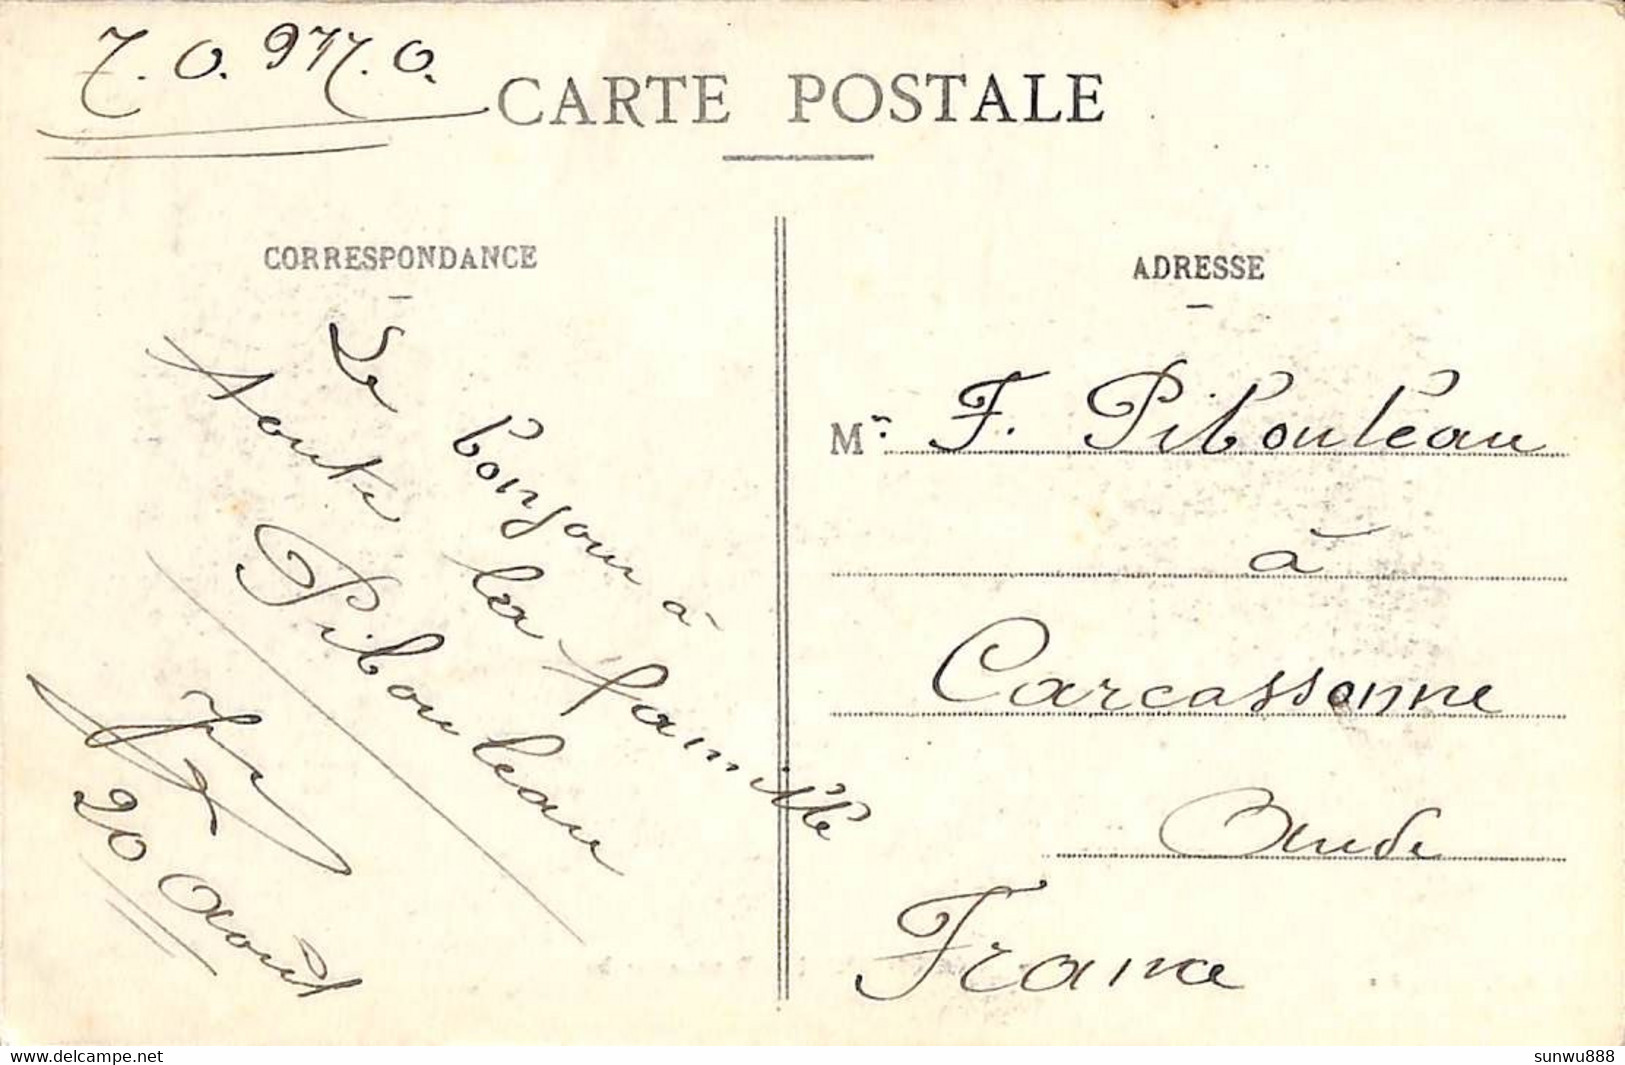 CARTE POSTALE
CORRESPONDANCE
Le bonjour à
toute la famille
Pibouleau
20 Août
ADRESSE
Mr. F. Pibouleau
à
Carcassonne
Aude
France
delcampe.net
sunwu888